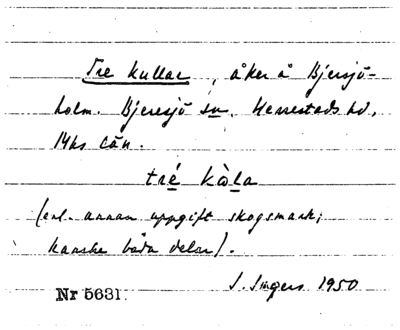 Tre kullar, åker å Bjersjö-
holm. Bjeresjö sn, Herrestads hd,
Mhs län.
tré kàla
(enl. annan uppgift skogsmark;
kanske båda delar).
J. Ingers 1950
Nr 5631